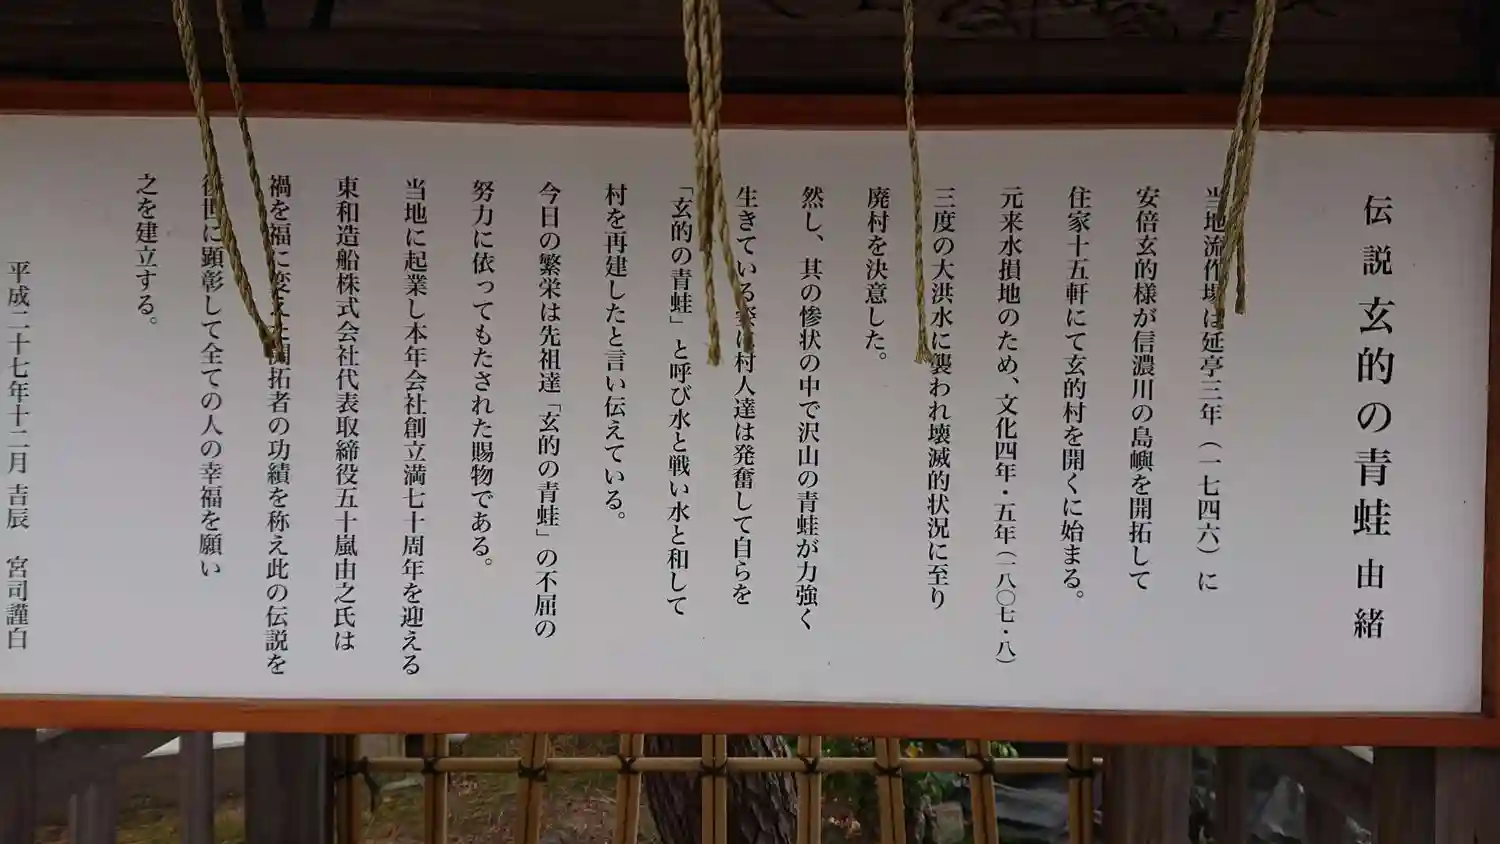 伝説 玄的の青蛙 由緒
当地流作場は延享三年（一七四六）に
安倍玄的様が信濃川の島嶼を開拓して
住家十五軒にて玄的村を開くに始まる。
元来水損地のため、文化四年・五年（一八〇七・八）
三度の大洪水に襲われ壊滅的状況に至り
廃村を決意した。
然し、其の惨状の中で沢山の青蛙が力強く
生きている姿に村人達は発奮して自らを
「玄的の青蛙」と呼び水と戦い水と和して
村を再建したと言い伝えている。
今日の繁栄は先祖達「玄的の青蛙」の不屈の
努力に依ってもたされた賜物である。
当地に起業し本年会社創立満七十周年を迎える
東和造船株式会社代表取締役五十嵐由之氏は
禍を福に変えた開拓者の功績を称え此の伝説を
後世に顕彰して全ての人の幸福を願い
之を建立する。
平成二十七年十二月吉辰 宮司謹白